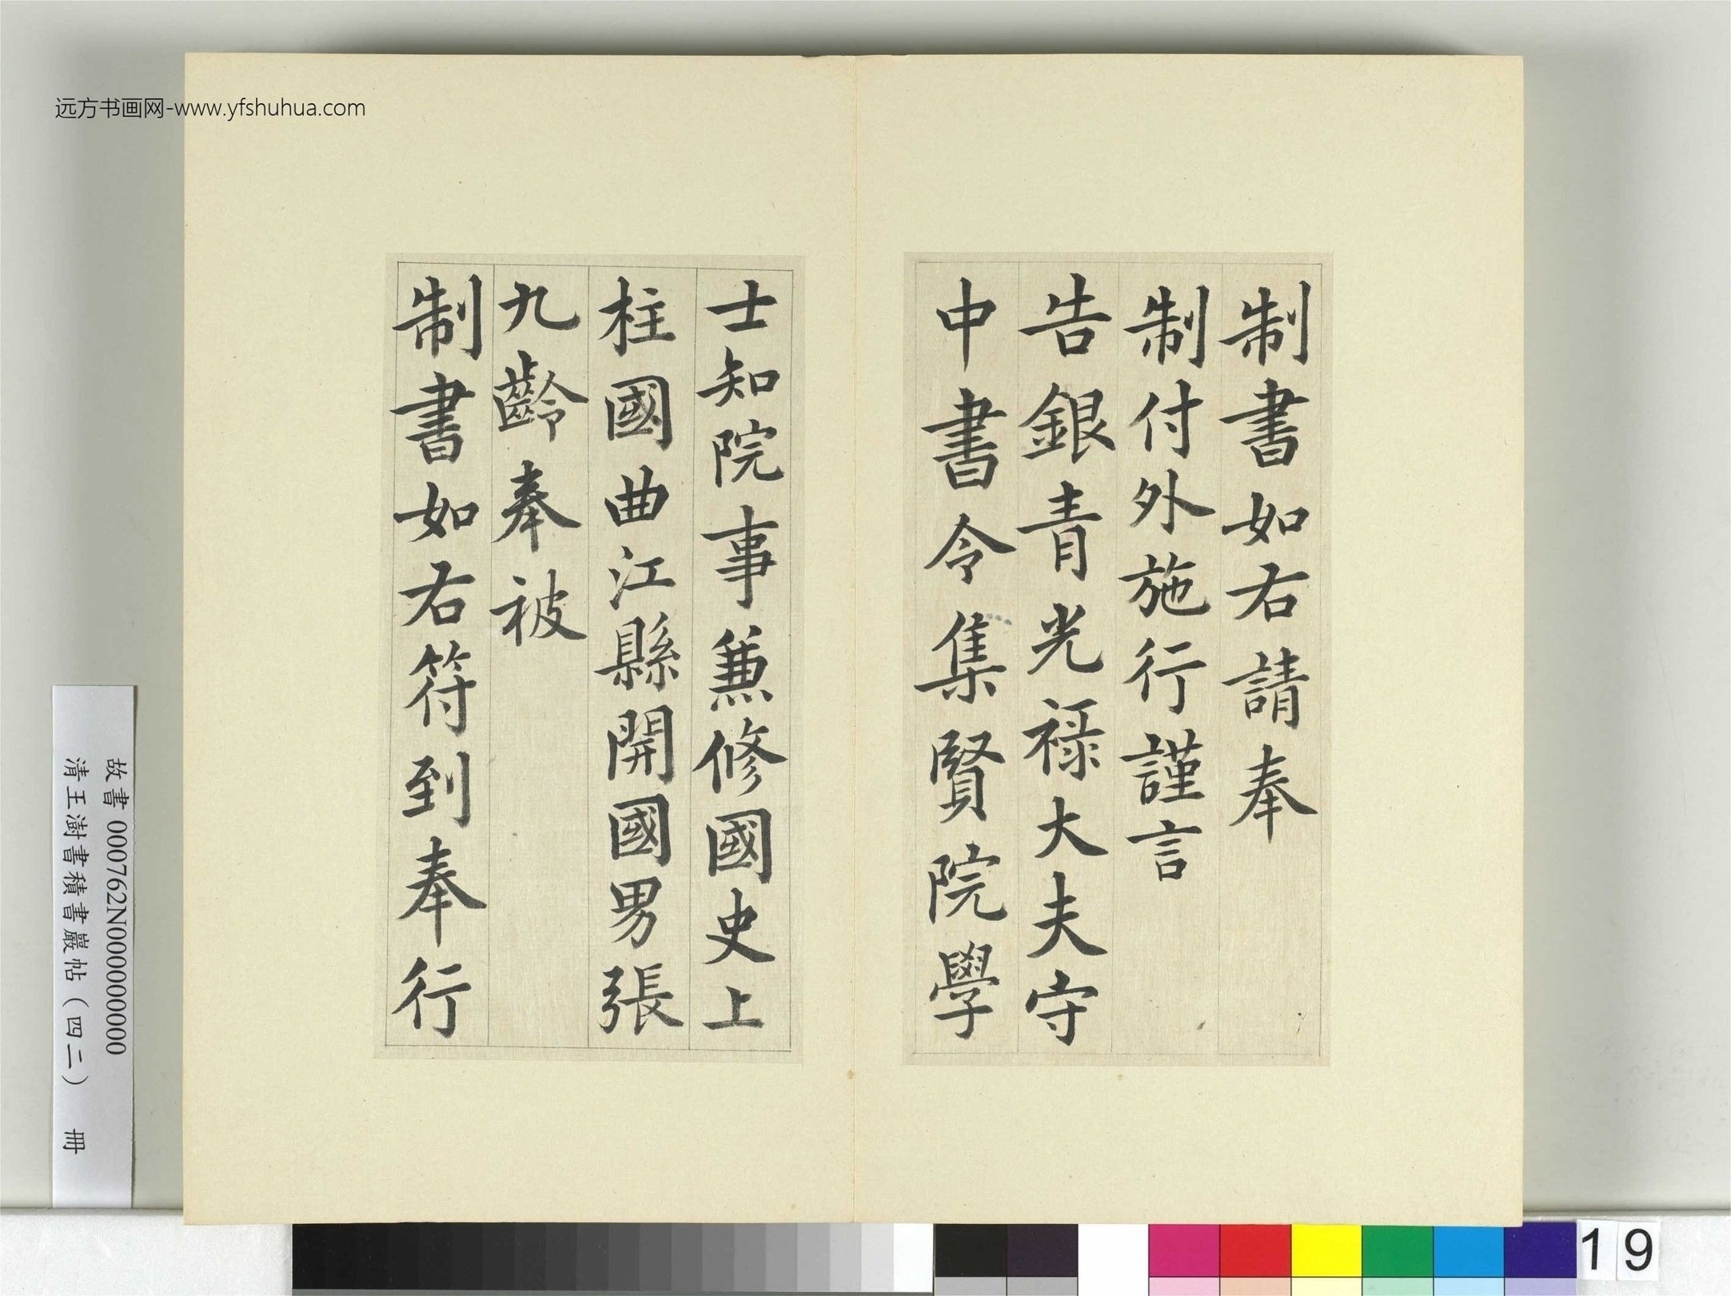 远方书画网-www.yfshuhua.com
制書如右請奉
制付外施行謹言
告銀青光祿大夫守
中書令集賢院學
士知院事兼修國史上
柱國曲江縣開國男張
九齡奉被
制書如右符到奉行
故書 000762N000000000
清王澍書積書巖帖(四二) 冊
19